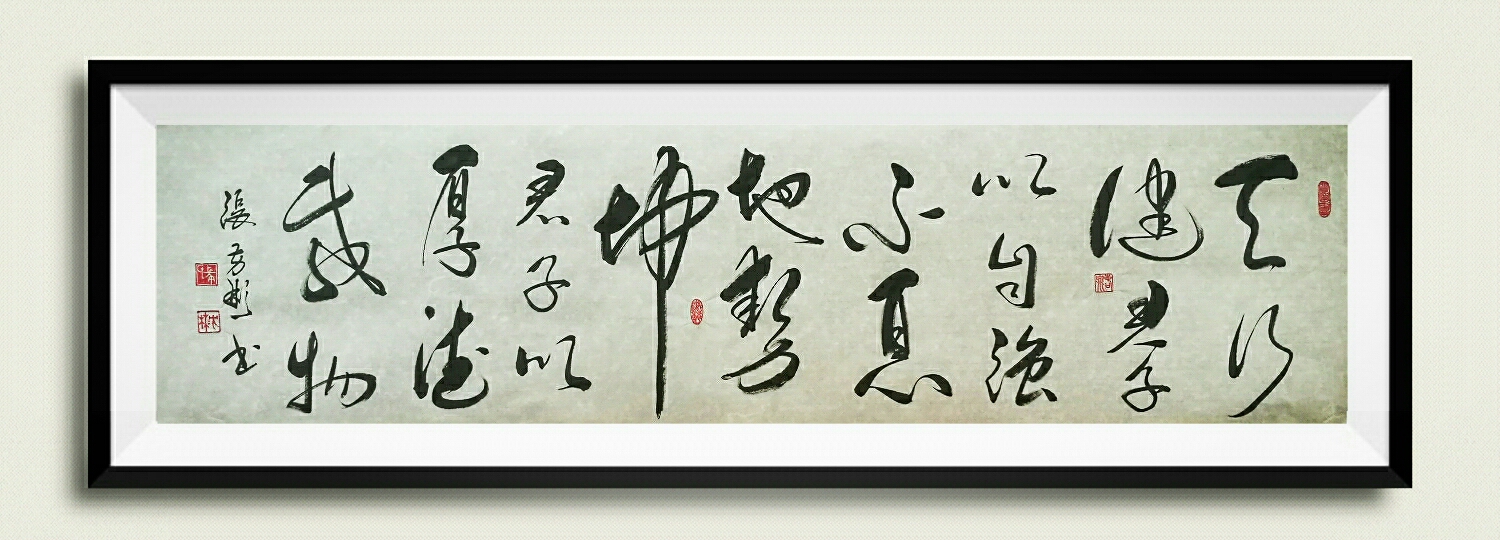 天行
健君子
以自强
不息
地势
坤
君子以
厚德
载物
張
书